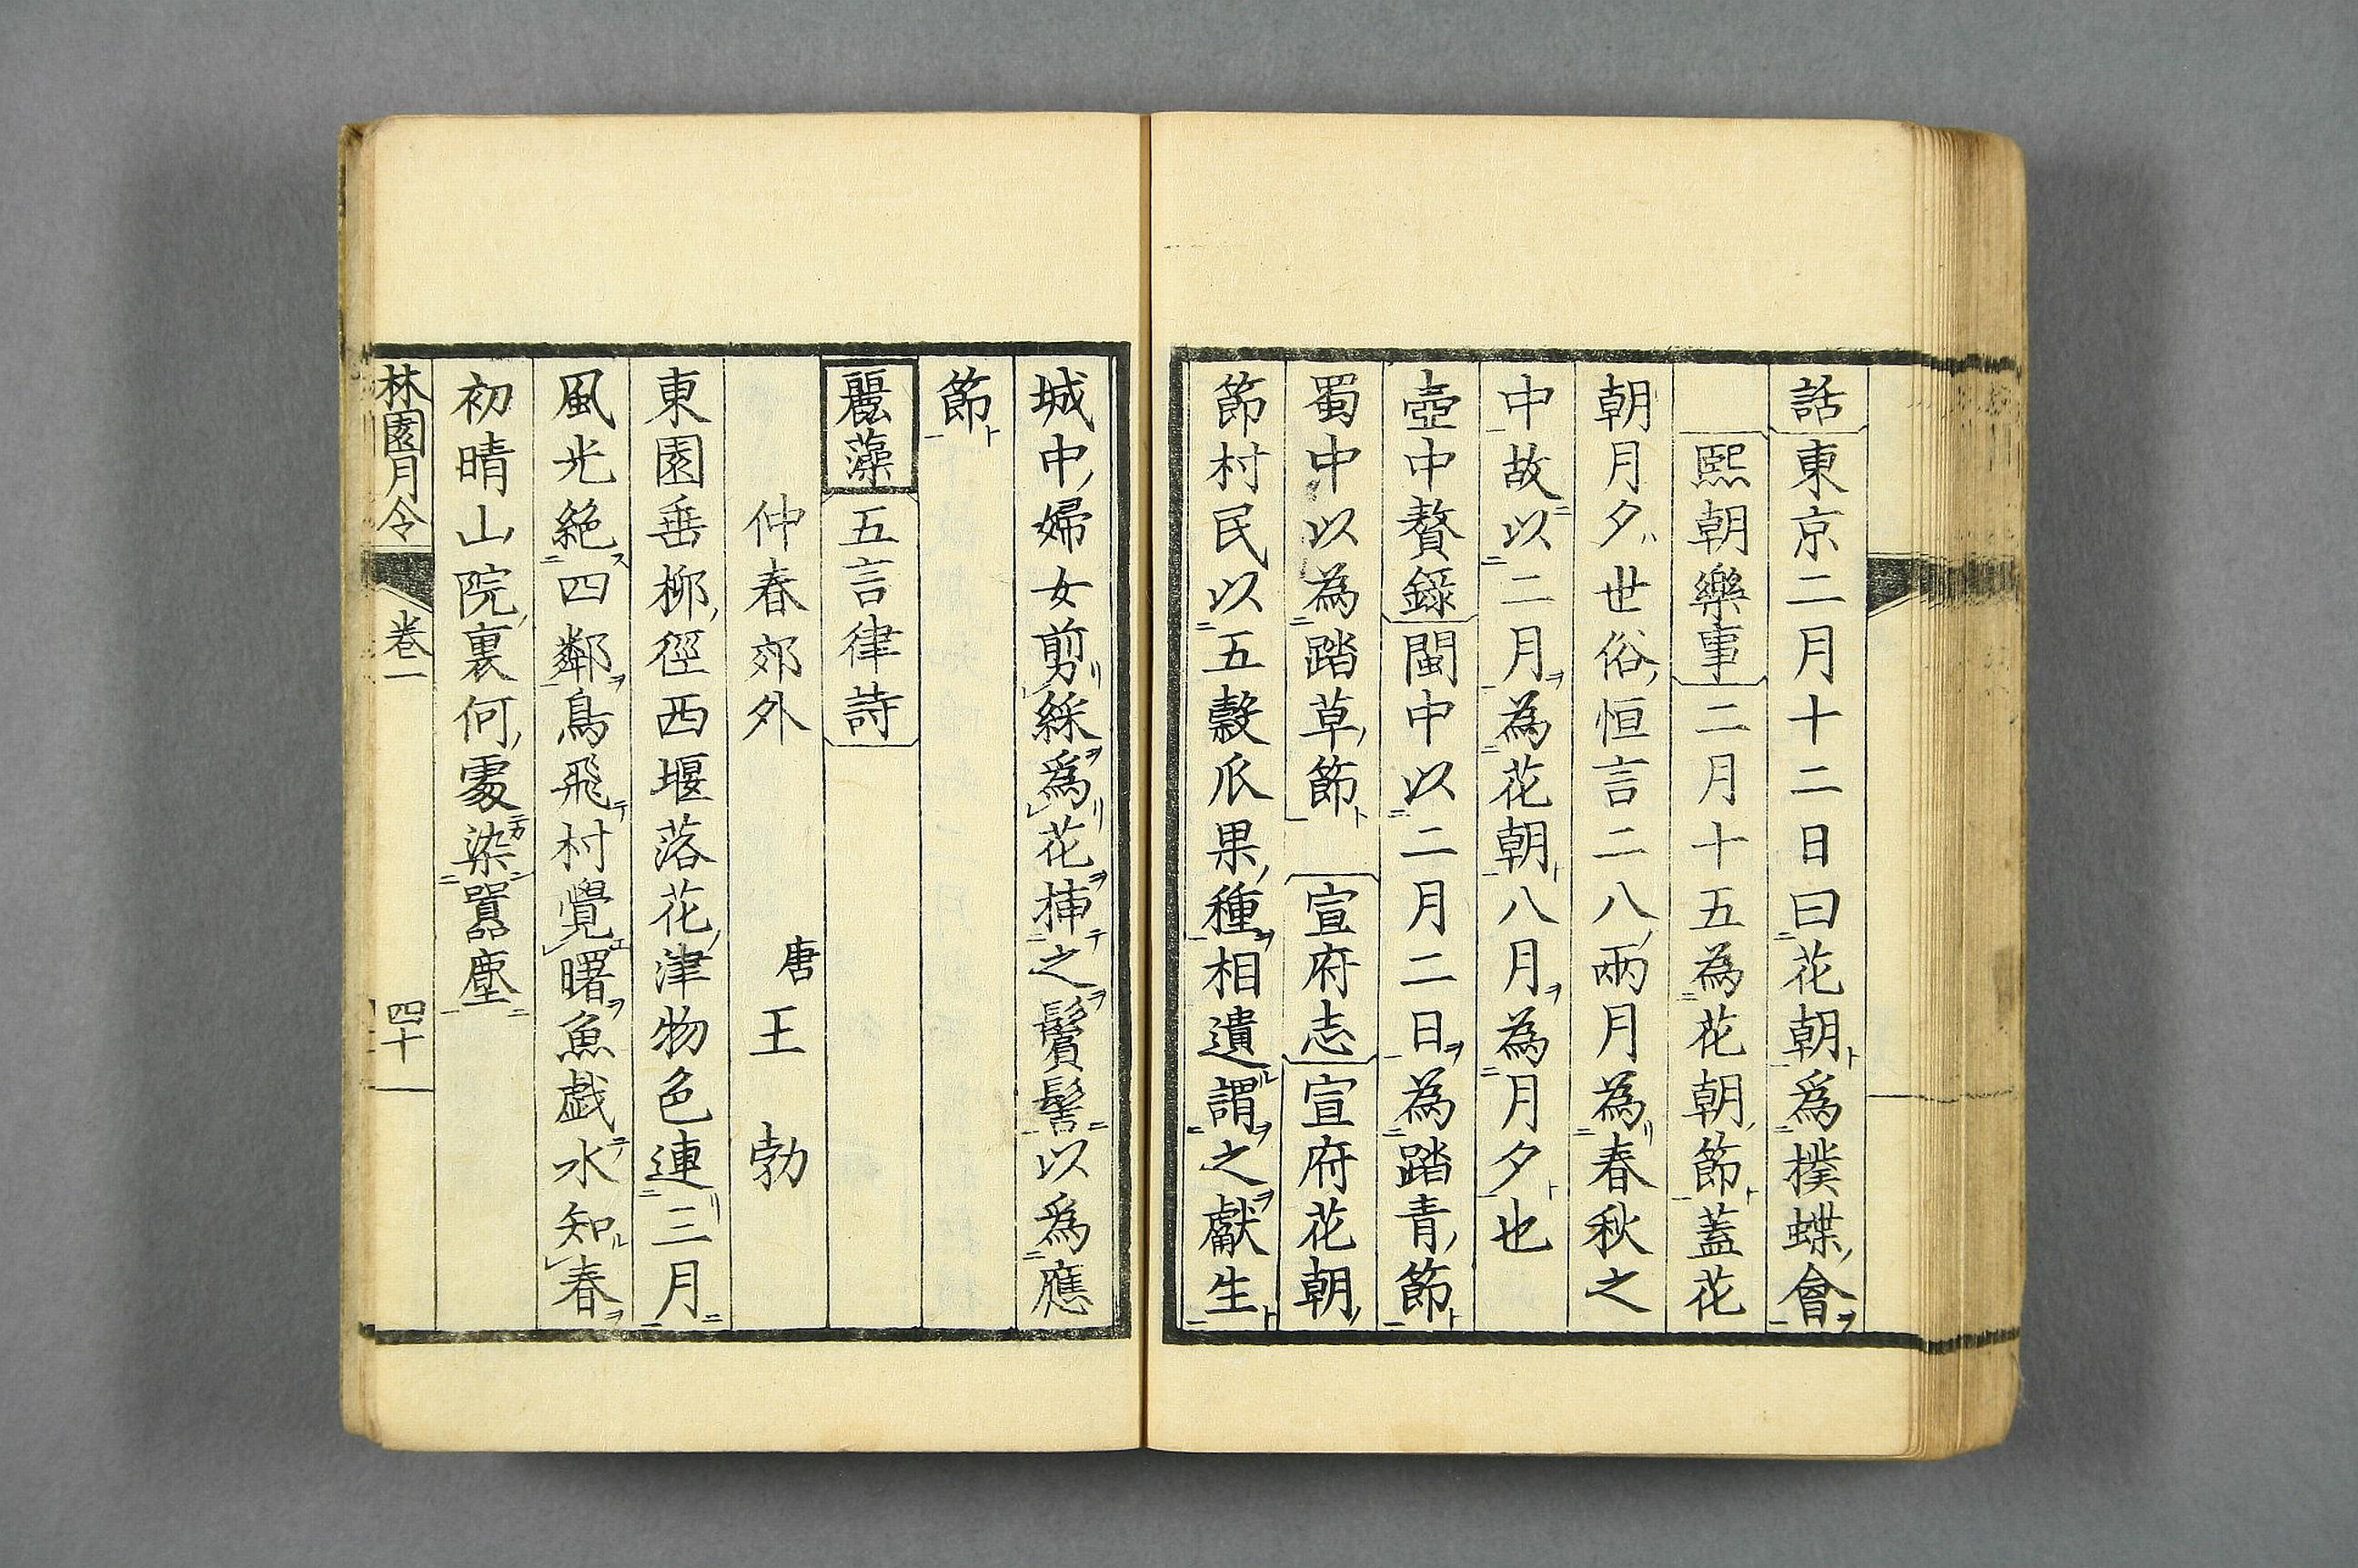 話東京二月十二日曰花朝爲撲蝶會
熙朝樂事二月十五為花朝節蓋花
朝月夕世俗恒言二八兩月為春秋之
中故以二月為花朝八月為月夕也
壺中贅錄閩中以二月二日為踏青節
蜀中以為踏草節宣府志宣府花朝
節村民以五穀瓜果種相遺謂之獻生
城中婦女剪綵爲花挿之鬢髻以爲應
節
麗藻五言律詩
仲春郊外唐王勃
東園垂柳徑西堰落花津物色連三月
風光絶四鄰鳥飛村覺曙魚戯水知春
初晴山院裏何處染囂塵
林園月令卷一四十